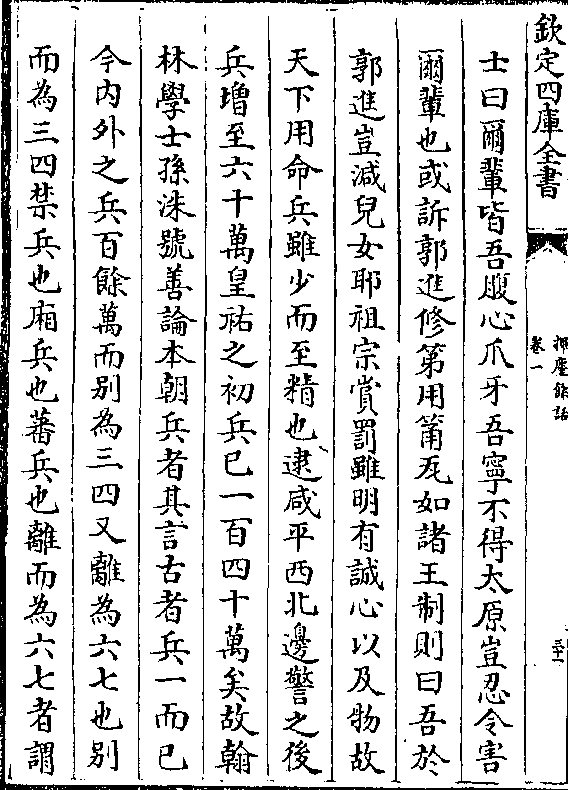 欽定四庫全書
揮麈餘話
卷一
三十一
士曰爾輩皆吾腹心爪牙吾寧不得太原豈忍令害
爾輩也或訴郭進修第用筩瓦如諸王制則曰吾於
郭進豈減兒女耶祖宗賞罰雖明有誠心以及物故
天下用命兵雖少而至精也逮咸平西北邊警之後
兵增至六十萬皇祐之初兵已一百四十萬矣故翰
林學士孫洙號善論本朝兵者其言古者兵一而已
今内外之兵百餘萬而别為三四又離為六七也别
而為三四禁兵也廂兵也蕃兵也離而為六七者謂